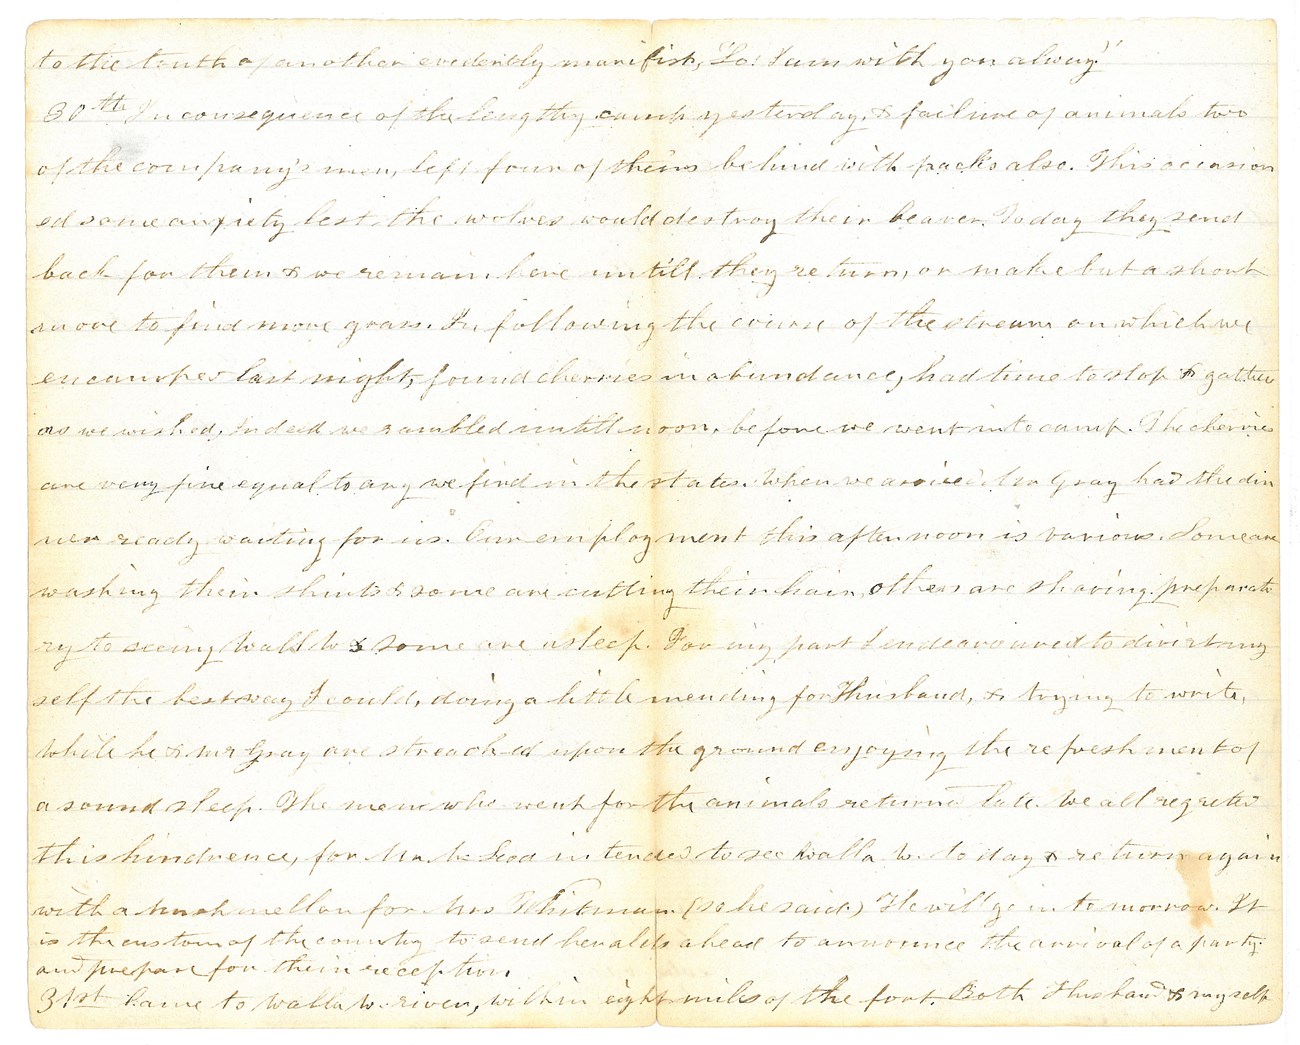 to the truth of another evedently manifist, "Lo! I am with you alway."
30th In consequence of the lengthy camp yesterday, & failure of animals two
of the company's men, left four of theirs behind with packs also. This occasion
ed some anxiety lest the wolves would destroy their beaver. Today they send
back for them & we remain here untill they return, or make but a short
move to find more grass. In following the course of the stream on which we
encamped last night, found cherries in abundance, had time to stop & gather
as we wished, Indeed we rambled untill noon, before we went into camp. The cherries
are very fine equal to any we find in the states. When we arrived Mr Gray had the din
ner ready waiting for us. Our employment this afternoon is various. Some are
washing their shirts & some are cutting their hair, others are shaving preparato
ry to seeing Walla W & some are asleep. For my part I endeavoured to divirt my
self the best way I could, doing a little mending for Husband, & trying to write,
while he & Mr Gray are streached upon the ground enjoying the refreshment of
a sound sleep. The men who went for the animals returned late. We all regreted
this hindrence, for Mr McLeod intended to see Walla W. today & return again
with a mushmellon for Mrs Whitman (so he said.) He will go in tomorrow. It
is the custom of the country to send heralds ahead to announce the arrival of a party
and prepare for their reception.
31st Came to Walla W. river, within eight miles of the fort. Both Husband & myself